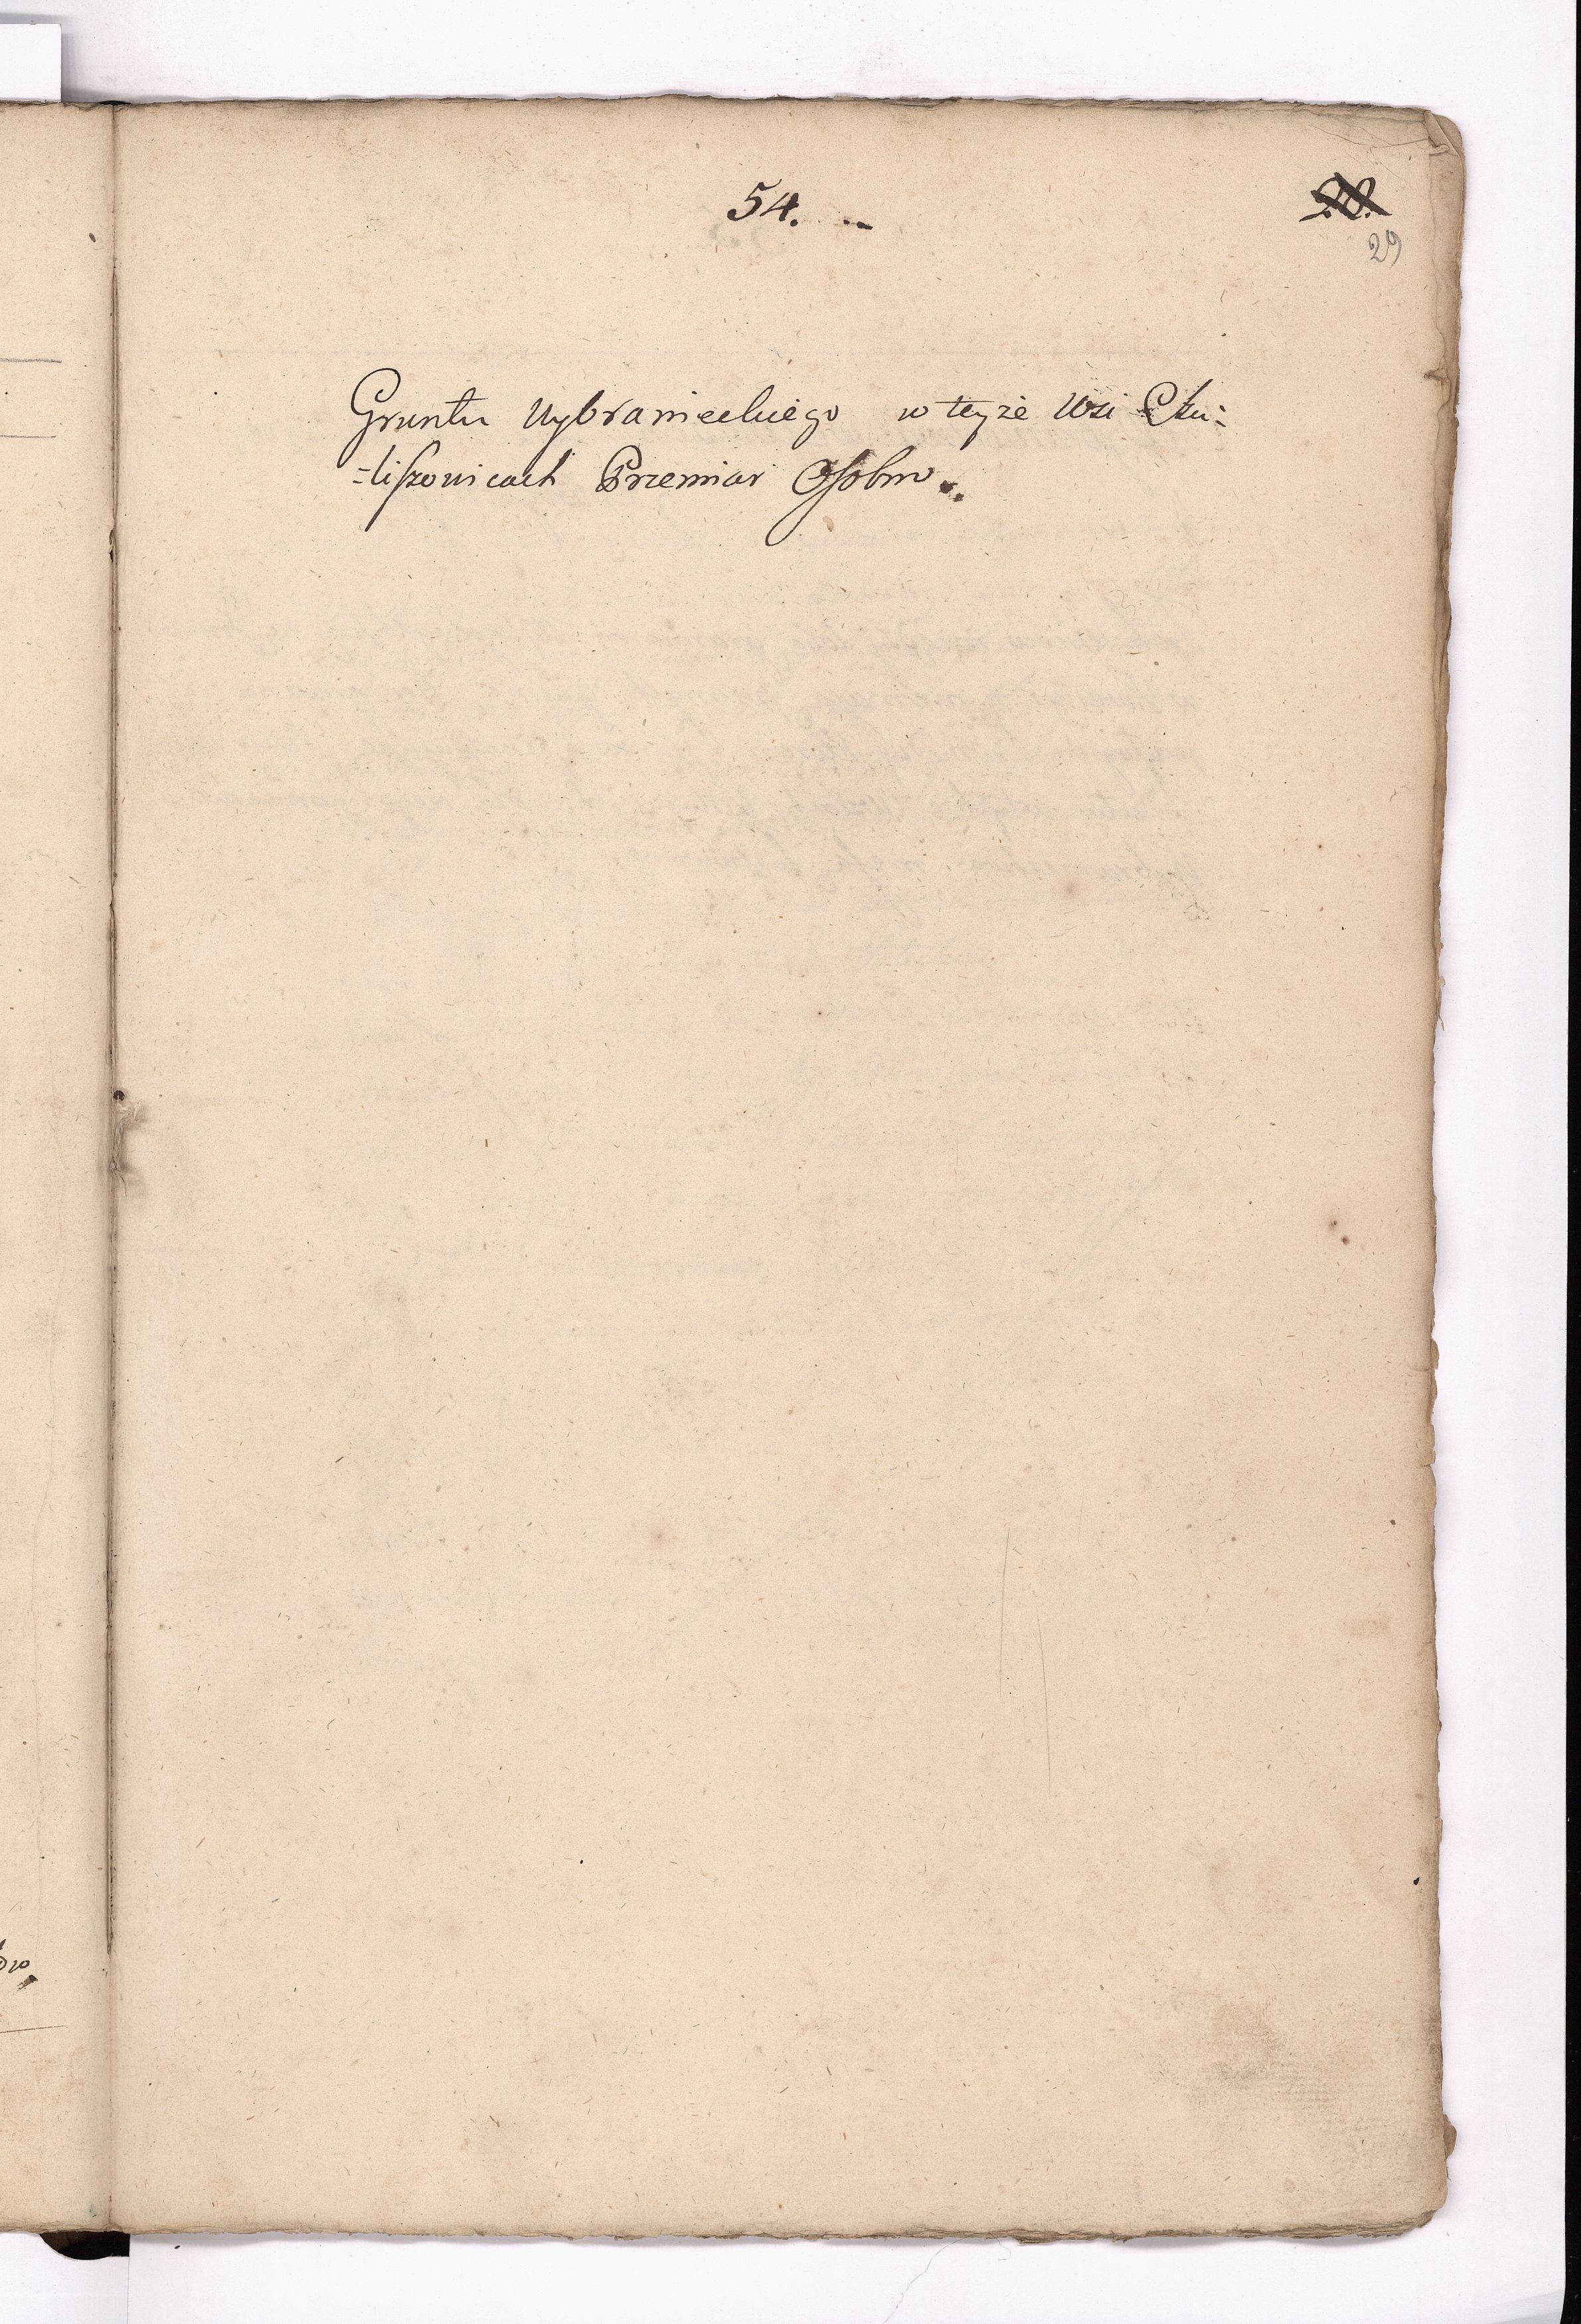 54.
29
Gruntu Wybranieckiego w teyże Wsi Czu:
=liszowicach Przemiar Osobno